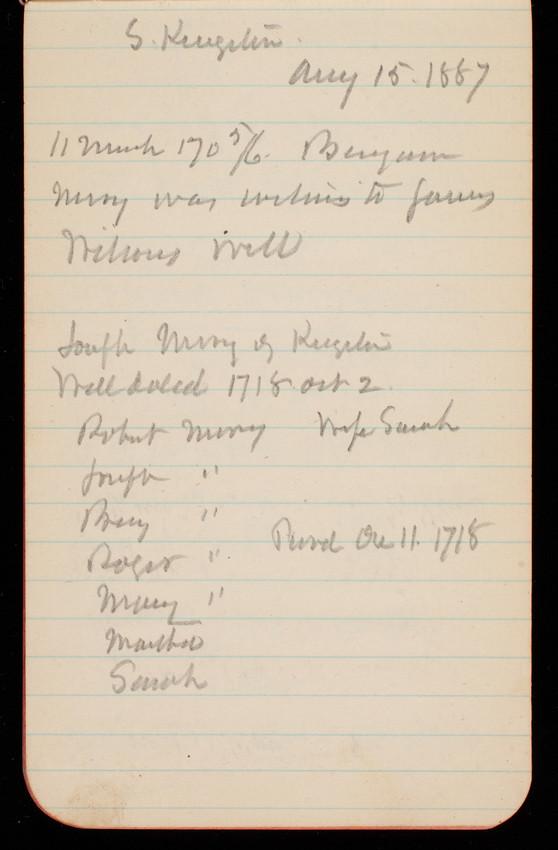 S. Kingston.
Aug 15. 1887
11 March 170 5/6. Benjamin
Mory was witness to James
Wilsons Will
Joseph Mory of Kingston
Will dated 1718 Oct 2.
Robert Mory Wife Sarah
Joseph "
Benj "
Roger " Proved Dec 11. 1718
Mary "
Martha
Sarah